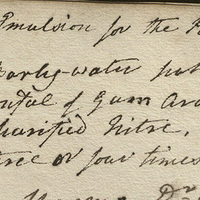 Emulsion for the
Barley-water put
onful of Gum Ara
urified Nitre,
ree or four times